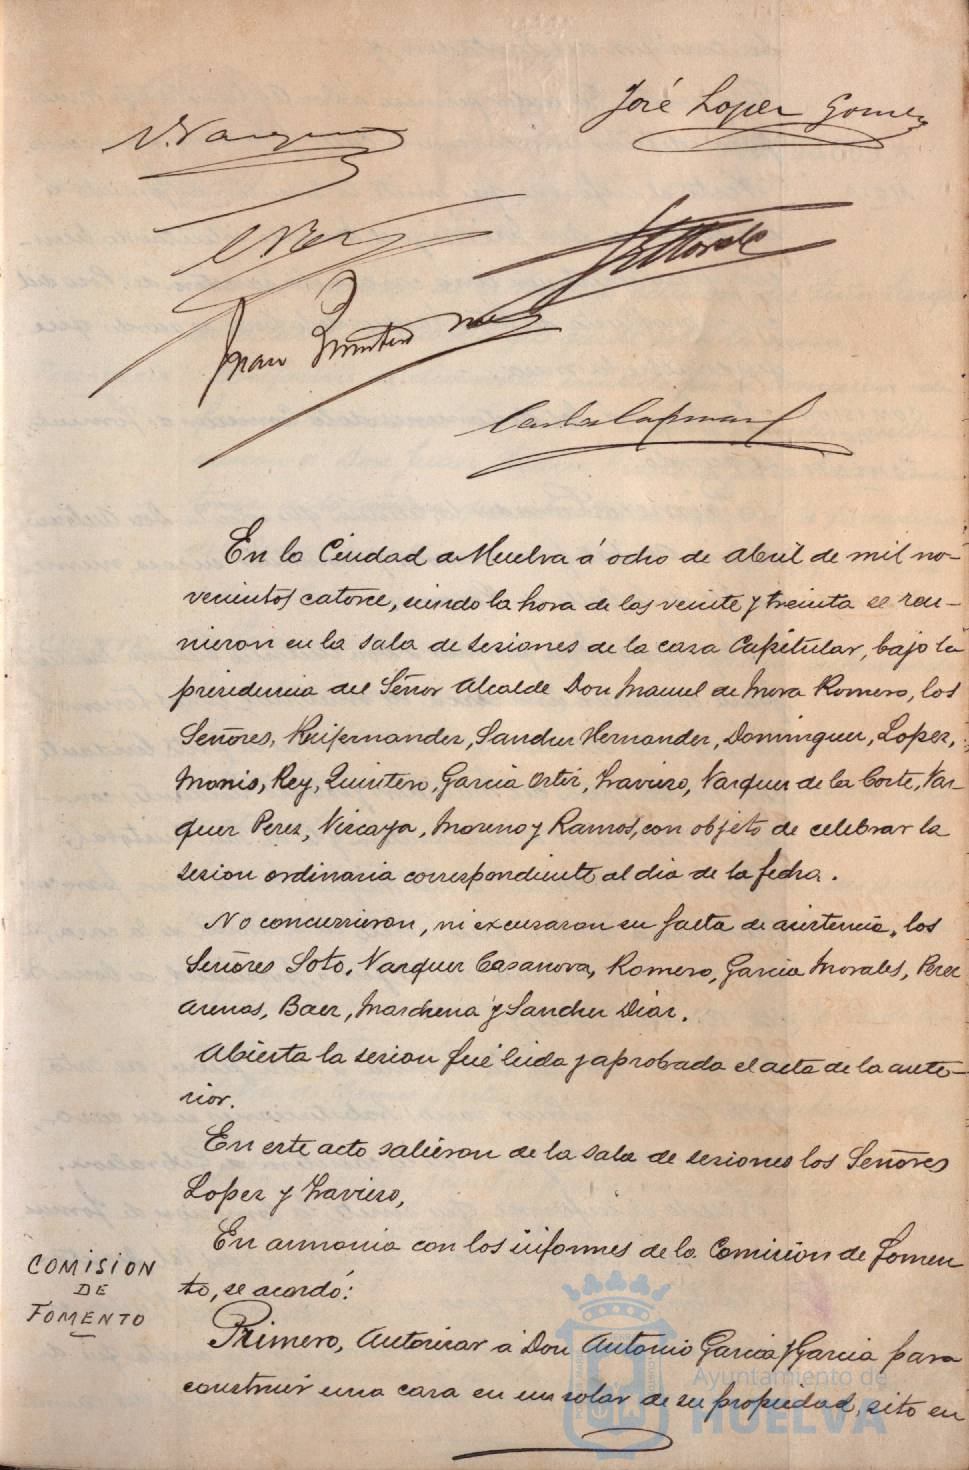 José Lopez Gomez
V. Vazquez
Rey
Juan Quintero
En la Ciudad de Huelva á ocho de Abril de mil no-
vecientos catorce, siendo la hora de las veinte y treinta se reu-
nieron en la sala de sesiones de la casa Capitular, bajo la
presidencia del Señor Alcalde Don Manuel de Mora Romero, los
Señores, Ruifernandez, Sanchez Hernandez, Dominguez, Lopez,
Monis, Rey, Quintero, Garcia Ortiz, Travieso, Vazquez de la Corte, Vaz-
quez Perez, Vizcaya, Moreno y Ramos, con objeto de celebrar la
sesion ordinaria correspondiente al dia de la fecha.
No concurrieron, ni excusaron su falta de asistencia, los
Señores Soto, Vazquez Casanova, Romero, Garcia Morales, Perez
Arenas, Baez, Marchena y Sanchez Diaz.
Abierta la sesion fué leida y aprobada el acta de la ante-
rior.
En este acto salieron de la sala de sesiones los Señores
Lopez y Travieso,
En armonia con los informes de la Comision de Fomen
to, se acordó:
COMISION
DE
FOMENTO
Primero, Autorizar á Don Antonio Garcia y Garcia para
construir una casa en un solar de su propiedad, sito en
Ayuntamiento de
HUELVA